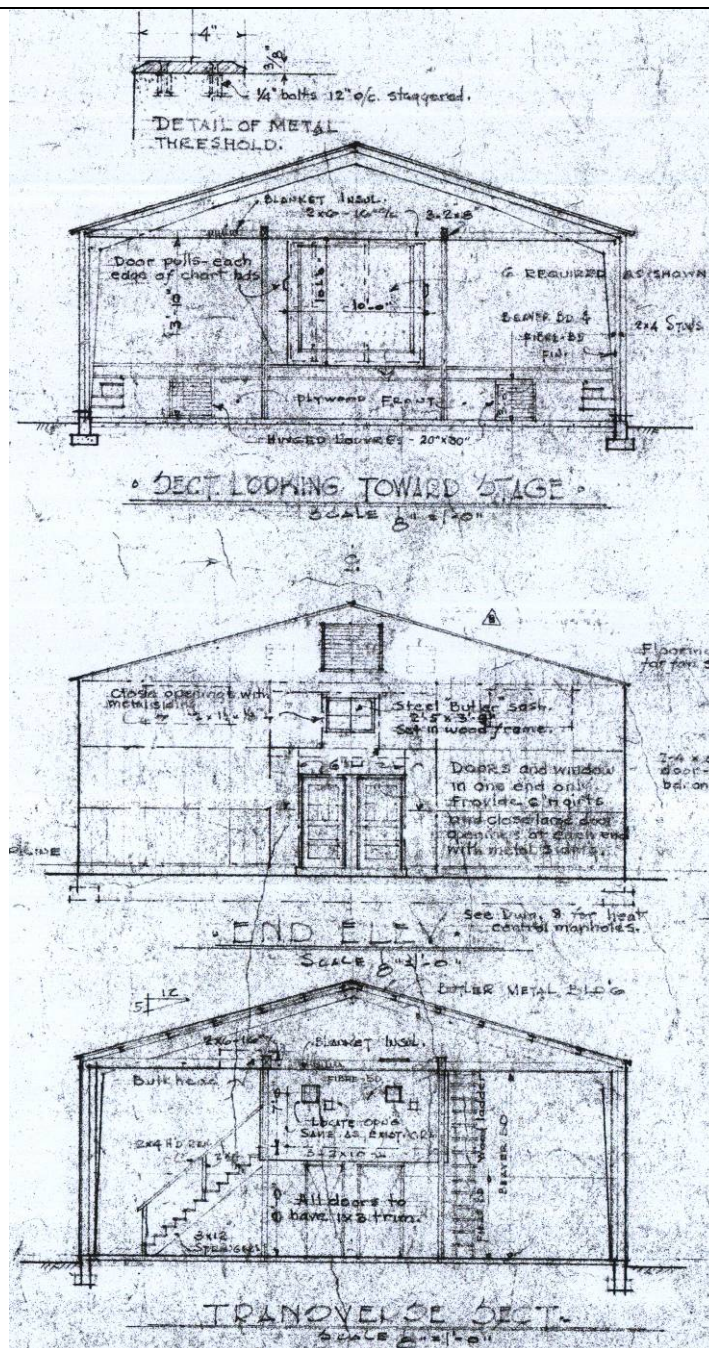 4"
3/8
1/4" bolts 12" o/c. staggered.
DETAIL OF METAL
THRESHOLD.
BLANKET INSUL.
2x6-16" o/c
3-2x8"
Door pulls-each
edge of chart bds
6 REQUIRED AS SHOWN
10'-0"
13'-10"
BEAVER BD &
FIBRE-BD
FIN.
2x4 STUDS
PLYWOOD FRONT.
HINGED LOUVRES - 20"x30"
SECT. LOOKING TOWARD STAGE
SCALE 1/8"=1'-0"
8
Flooring
Close openings with
metal siding
Steel "Butler" sash.
Set in wood frame.
DOORS and window
in one end only
Provide girts
and close large door
openings at each end
with metal
door
END ELEV.
SCALE 1/8"=1'-0"
See Dwg. 8 for heat
control manholes.
12
5
BUTLER METAL BLD'G
2x6-16"
BLANKET INSUL.
Bulkhead
FIBRE-BD
LOCATE OPNG
SAME AS EXIST.
3-2x10
2x4 HD. RAIL
Wood ladder
BEAVER BD
FIBRE BD
All doors to
have 1x3 trim.
3x12"
STRINGERS
TRANSVERSE SECT.
SCALE 1/8"=1'-0"